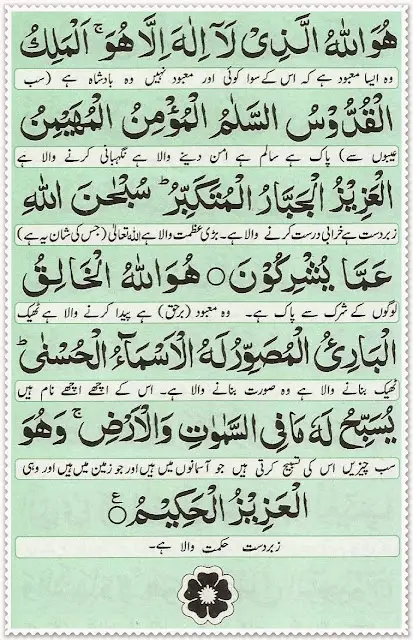 هُوَ اللهُ الَّذِیْ لَاۤ اِلٰهَ اِلَّا هُوَ ۚ اَلْمَلِكُ
وہ ایسا معبود ہے کہ اس کے سوا کوئی اور معبود نہیں وہ بادشاہ ہے (سب
الْقُدُّوْسُ السَّلٰمُ الْمُؤْمِنُ الْمُهَیْمِنُ
عیبوں سے) پاک ہے سالم ہے امن دینے والا ہے نگہبانی کرنے والا ہے
الْعَزِیْزُ الْجَبَّارُ الْمُتَكَبِّرُ ؕ سُبْحٰنَ اللهِ
زبردست ہے خرابی درست کرنے والا ہے۔ بڑی عظمت والا ہے اللہ تعالیٰ (جس کی شان یہ ہے)
عَمَّا یُشْرِكُوْنَ ○ هُوَ اللهُ الْخَالِقُ
لوگوں کے شرک سے پاک ہے۔ وہ معبود (برحق) ہے پیدا کرنے والا ہے ٹھیک
الْبَارِئُ الْمُصَوِّرُ لَهُ الْاَسْمَآءُ الْحُسْنٰی ؕ
ٹھیک بنانے والا ہے وہ صورت بنانے والا ہے۔ اس کے اچھے اچھے نام ہیں
یُسَبِّحُ لَهٗ مَا فِی السَّمٰوٰتِ وَالْاَرْضِ ۚ وَهُوَ
سب چیزیں اس کی تسبیح کرتی ہیں جو آسمانوں میں ہیں اور جو زمین میں ہیں اور وہی
الْعَزِیْزُ الْحَكِیْمُ ○ ع
زبردست حکمت والا ہے۔